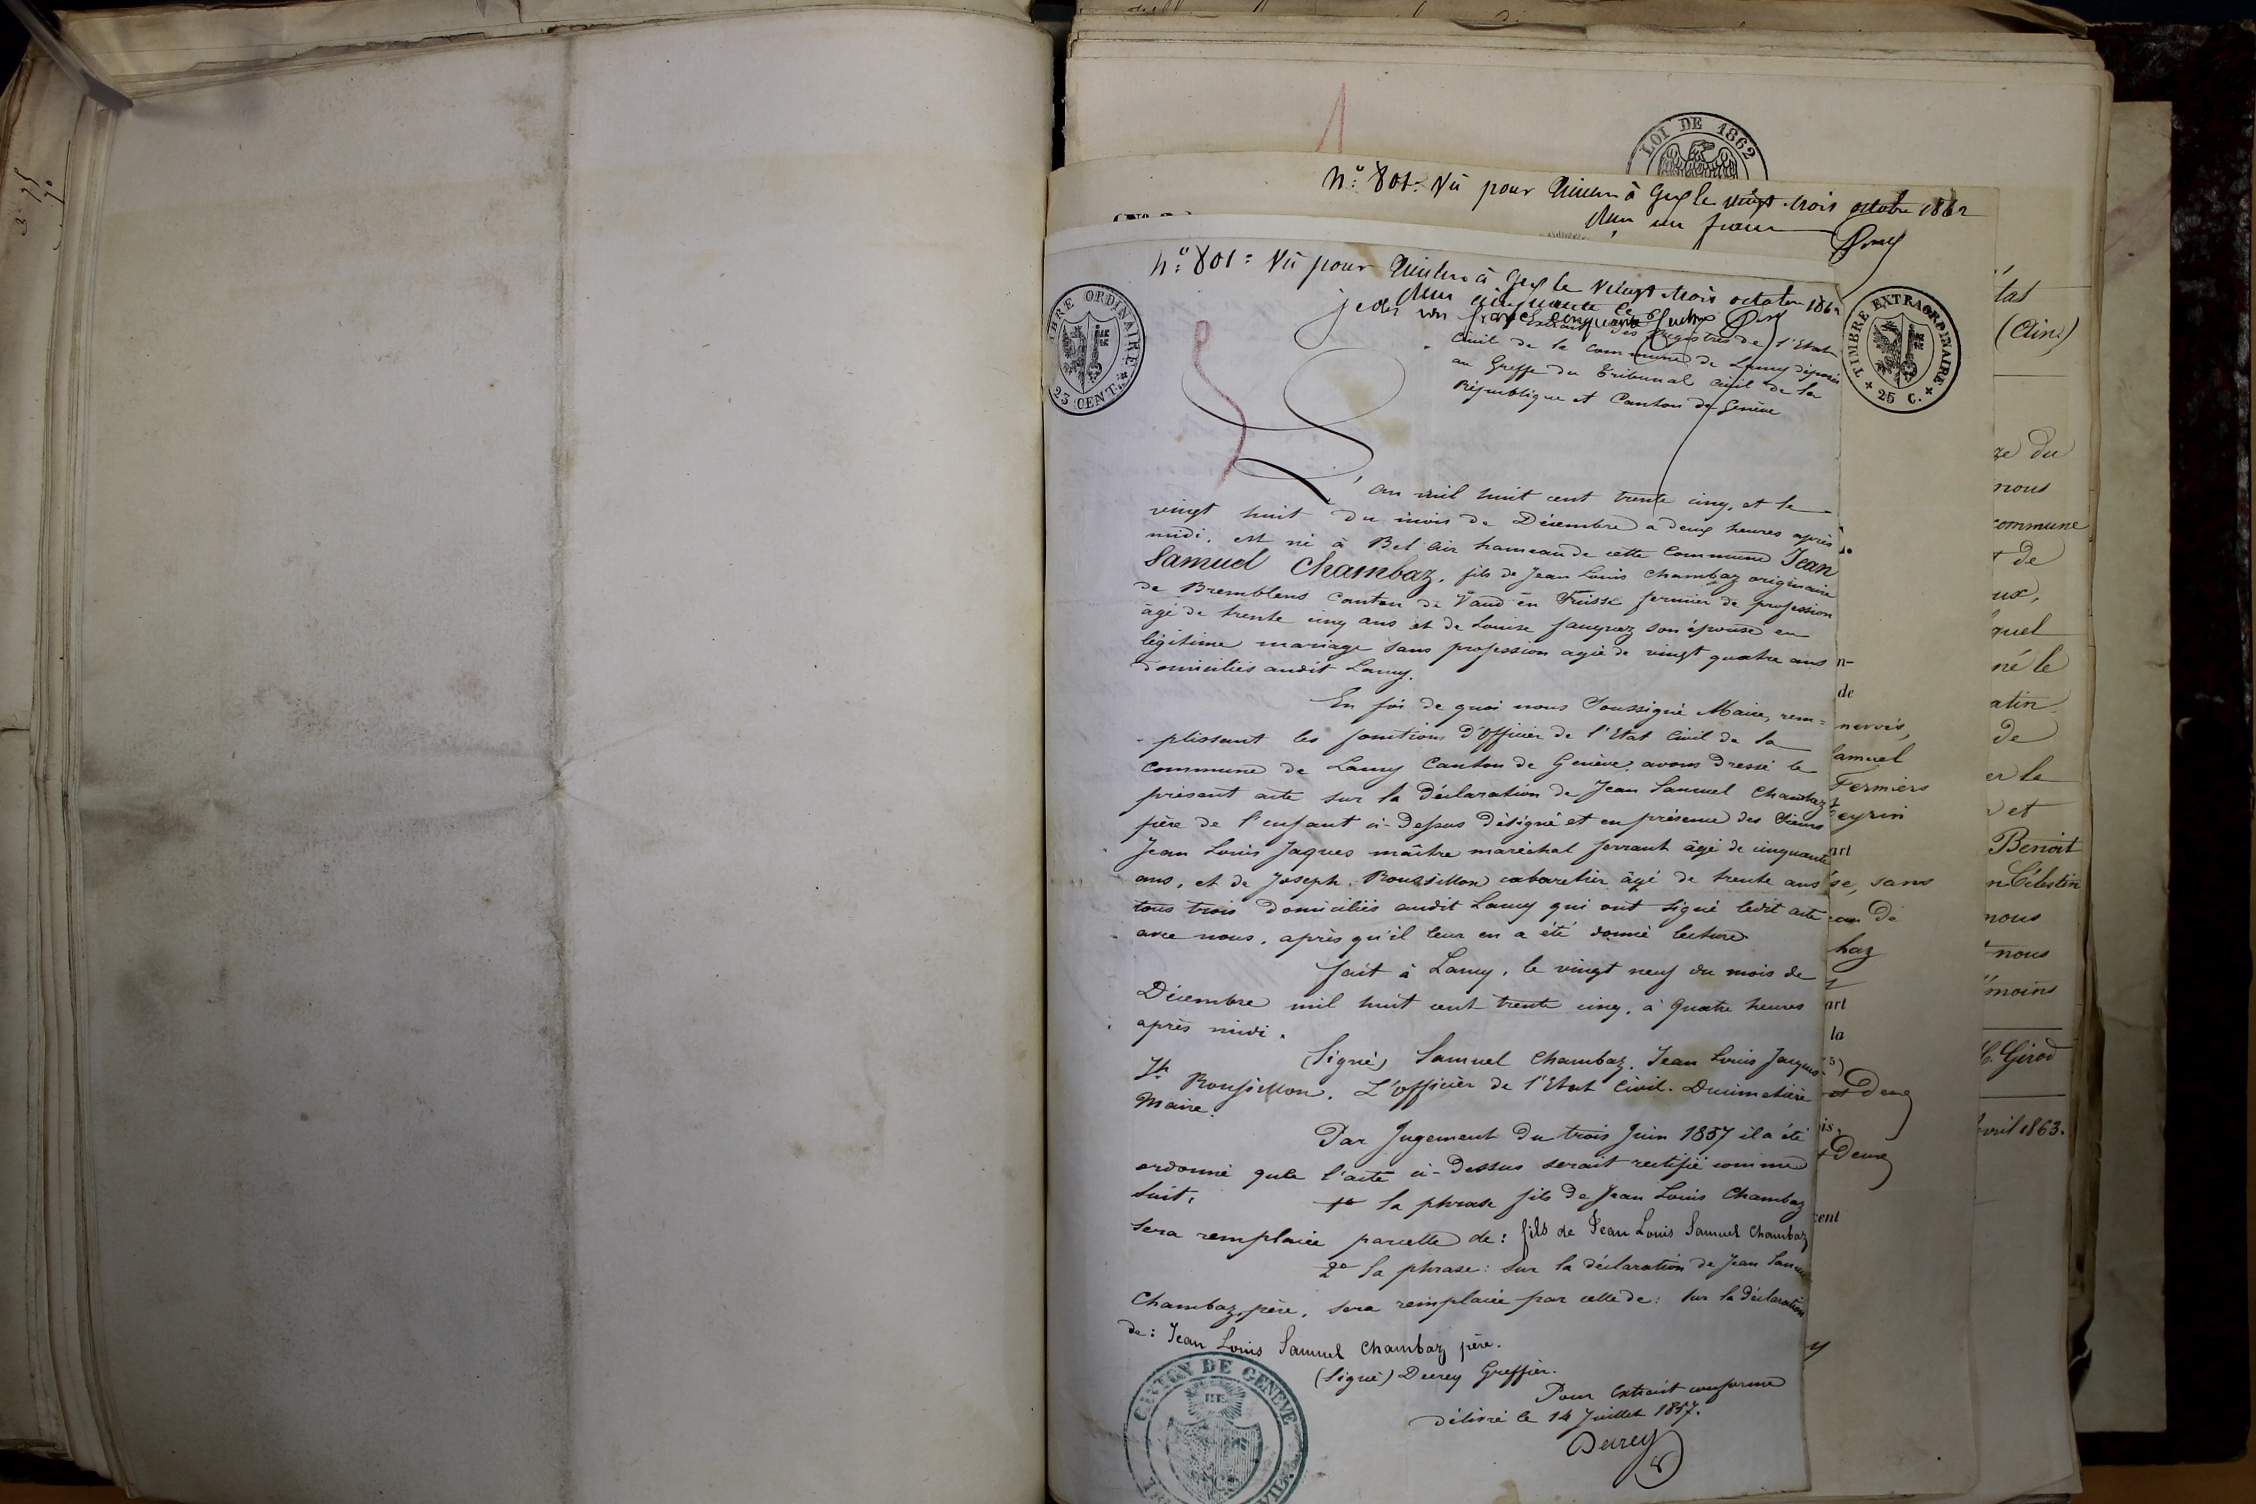 LOI DE 1862
N.° 801. Vu pour timbre à Gex le vingt trois octobre 1862
un franc
N.° 801. Vu pour timbre à Gex le vingt trois octobre 1862
cinquante
TIMBRE ORDINAIRE
25 CENT.
TIMBRE EXTRAORDINAIRE
25 C.
Extrait des Registres de l'Etat
Civil de la commune de Lancy déposés
au Greffe du Tribunal Civil de la
République et Canton de Genève
L'an mil huit cent trente cinq, et le
vingt huit du mois de Décembre a deux heures après
midi. est né à Bel air hameau de cette Commune Jean
Samuel Chambaz, fils de Jean Louis Chambaz originaire
de Bremblens Canton de Vaud en Suisse fermier de profession
âgé de trente cinq ans et de Louise son épouse en
légitime mariage sans profession agée de vingt quatre ans
domiciliés audit Lancy.
En foi de quoi nous Soussigné Maire, rem=
plissant les fonctions d'Officier de l'Etat Civil de la
Commune de Lancy Canton de Genève, avons dressé le
présent acte sur la déclaration de Jean Samuel Chambaz
père de l'enfant ci-dessus désigné et en présence des Sieurs
Jean Louis Jaques maître maréchal ferrant âgé de cinquante
ans, et de Joseph Roussillon cabaretier âgé de trente ans
tous trois domiciliés audit Lancy qui ont signé ledit acte
avec nous, après qu'il leur en a été donné lecture.
fait à Lancy, le vingt neuf du mois de
Décembre mil huit cent trente cinq, à quatre heures
après midi.
(Signé) Samuel Chambaz. Jean Louis Jaques
Jh Roussillon. L'officier de l'Etat Civil. Ducimetière
Maire.
Par Jugement du trois Juin 1857 il a été
ordonné que l'acte ci-dessus serait rectifié comme
suit:
1° la phrase fils de Jean Louis Chambaz
sera remplacée par celle de: fils de Jean Louis Samuel Chambaz
2° la phrase: sur la déclaration de Jean Samuel
Chambaz père, sera remplacée par celle de: sur la déclaration
de: Jean Louis Samuel Chambaz père.
(Signé) Durey Greffier.
Pour Extrait conforme
délivré le 14 Juillet 1857.
Durey
CANTON DE GENEVE
(Ain)
ze du
nous
commune
de
quel
né le
de
er le
et
Benoit
n Célestin
nous
nous
moins
C. Girod
Avril 1863.
de
Samuel
Fermiers
eyrin
art
se, sans
haz
art
la
cent